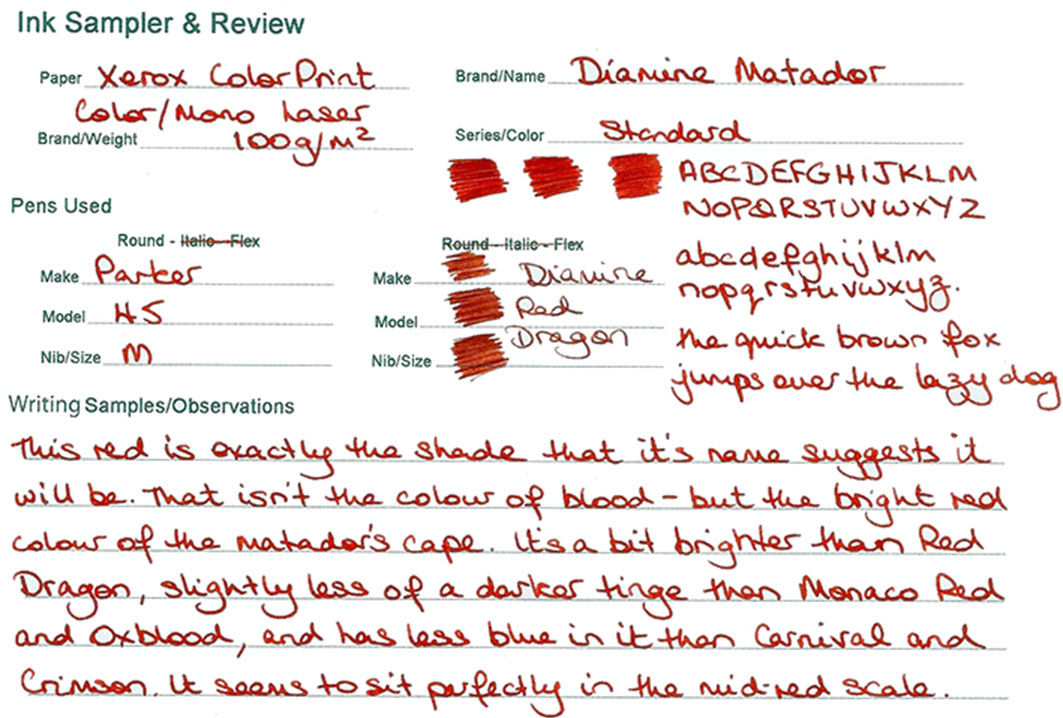 Ink Sampler & Review
Paper Xerox ColorPrint
Color/Mono Laser
Brand/Weight 100g/m²
Brand/Name Diamine Matador
Series/Color Standard
ABCDEFGHIJKLM
NOPQRSTUVWXYZ
Pens Used
Round - Italic - Flex
Make Parker
Model 45
Nib/Size M
Round - Italic - Flex
Make Diamine
Model Red
Dragon
Nib/Size
abcdefghijklm
nopqrstuvwxyz.
the quick brown fox
jumps over the lazy dog
Writing Samples/Observations
This red is exactly the shade that it's name suggests it
will be. That isn't the colour of blood - but the bright red
colour of the matador's cape. It's a bit brighter than Red
Dragon, slightly less of a darker tinge than Monaco Red
and Oxblood, and has less blue in it than Carnival and
Crimson. It seems to sit perfectly in the mid-red scale.